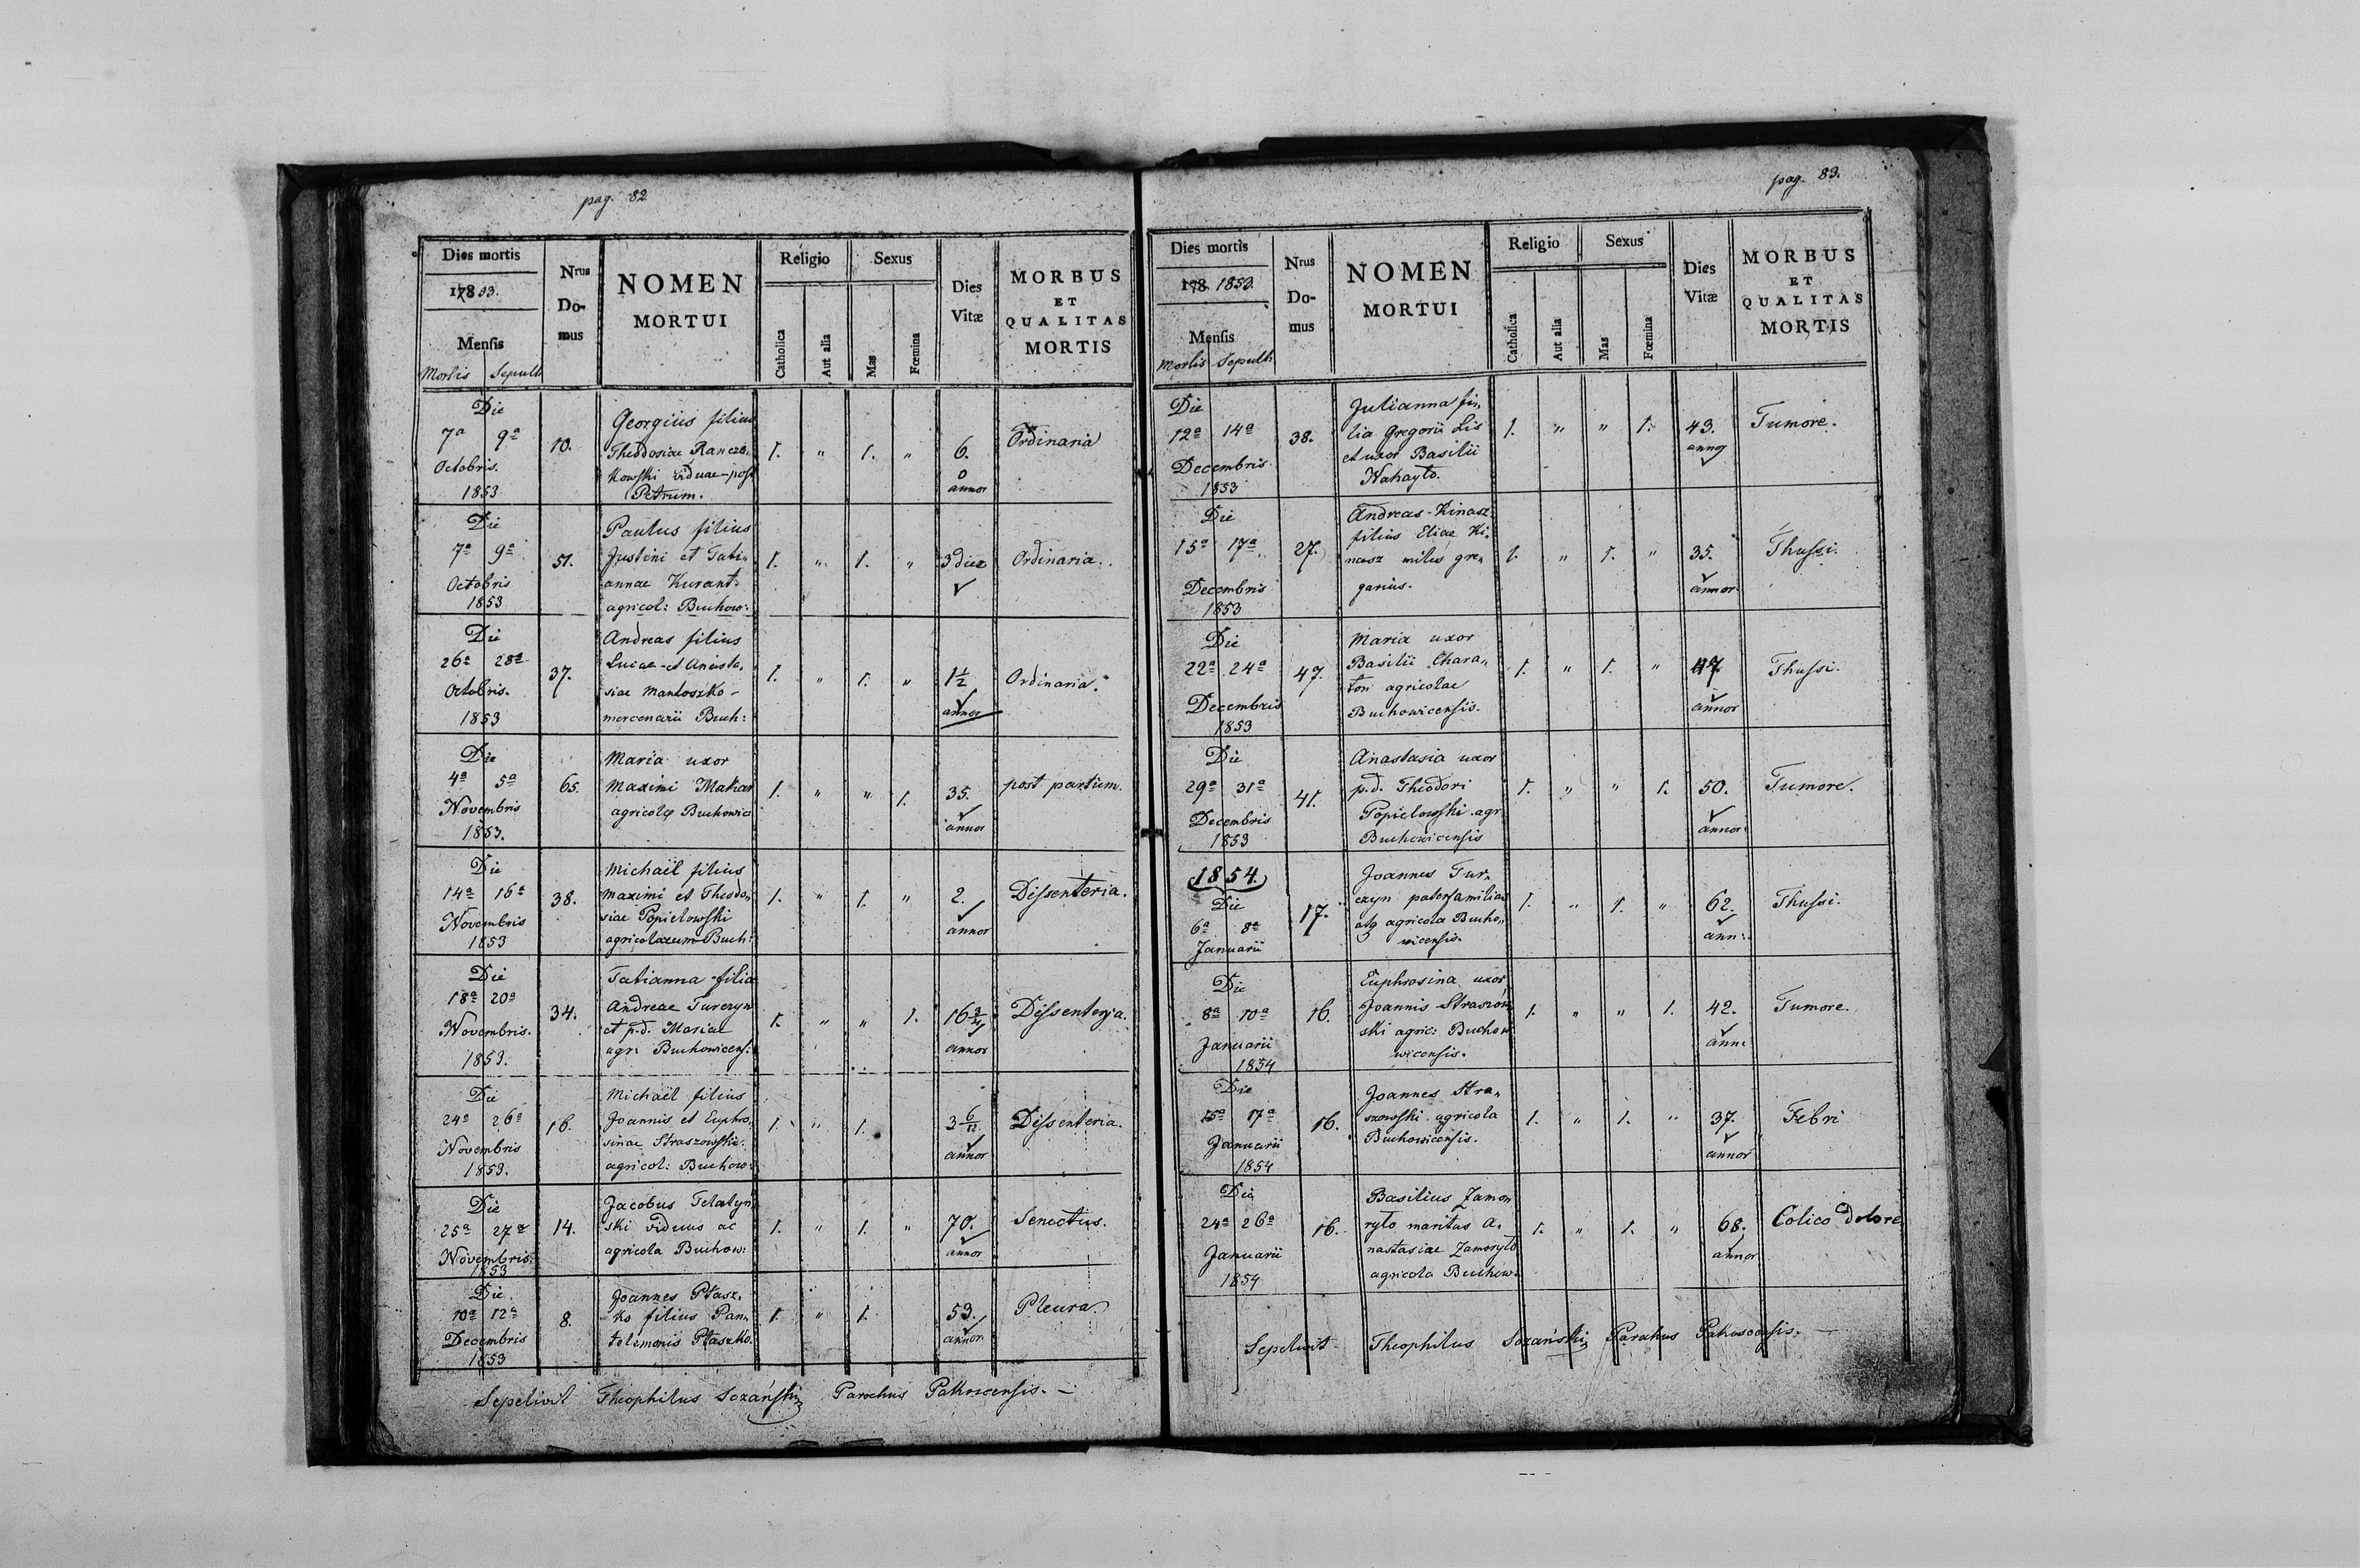 pag. 82
Dies mortis
178 53.
Mensis
Mortis Sepult:
Nrus
Do-
mus
NOMEN
MORTUI
Religio
Catholica
Aut alia
Sexus
Mas
Fœmina
Dies
Vitæ
MORBUS
ET
QUALITAS
MORTIS
Die
7a 9a
Octobris.
1853
10.
Georgius filius
Theodosiae Ranczo,
kowski viduae post
Petrum.
1. " 1. "
6.
annor
Ordinaria
Die
7a 9a
Octobris
1853
51.
Paulus filius
Justini et Tati,
annae Kurant
agricol: Buchow:
1. " 1. "
3 dies
Ordinaria.
Die
26a 28a
Octobris.
1853
37.
Andreas filius
Lucae et Anasta,
siae Mantoszko
mercenarii Buch:
1. " 1. "
1 1/2
annor
Ordinaria.
Die
4a 5a
Novembris
1853.
65.
Maria uxor
Maximi Makar
agricolę Buchowic
1. " " 1.
35.
annor
post partum.
Die
14a 16a
Novembris
1853
38.
Michaël filius
Maximi et Theodo,
siae Popielowski
agricolarum Buch:
1. " 1. "
2.
annor
Dissenteria.
Die
18a 20a
Novembris.
1853.
34.
Tatianna filia
Andreae Tureczyn
et p.d. Mariae
agr: Buchowicens:
1. " " 1.
16 3/4
annor
Dissenteria.
Die
24a 26a
Novembris
1853.
16.
Michaël filius
Joannis et Euphro,
sinae Straszowski
agricol: Buchow:
1. " 1.
3 6/12
annor
Dissenteria.
Die
25a 27a
Novembris
1853
14.
Jacobus Telatyn,
ski viduus ac
agricola Buchow:
1. " 1. "
70.
annor
Senectus.
Die
10a 12a
Decembris
1853
8.
Joannes Ptasz,
ko filius Pan,
telemonis Ptaszko.
1. " 1.
53.
annor
Pleura.
Sepelivit Theophilus Sozański Parochus Pakoscensis.
pag. 83.
Dies mortis
178 1853.
Mensis
Mortis Sepult:
Nrus
Do-
mus
NOMEN
MORTUI
Religio
Catholica
Aut alia
Sexus
Mas
Fœmina
Dies
Vitæ
MORBUS
ET
QUALITAS
MORTIS
Die
12a 14a
Decembris
1853
38.
Julianna fi,
lia Gregorii Lis
et uxor Basilii
Nahayło.
1. " " 1.
43.
annor
Tumore.
Die
15a 17a
Decembris
1853
27.
Andreas Kinasz
filius Eliae Ki,
nasz miles gre,
garius.
1. " 1. "
35.
annor
Thussi.
Die
22a 24a
Decembris
1853
47.
Maria uxor
Basilii Chara,
ton agricolae
Buchowicensis.
1. " 1. "
47
annor
Thussi.
Die
29a 31a
Decembris
1853
41.
Anastasia uxor
p.d. Theodori
Popielowski agr.
Buchowicensis
1. " " 1.
50.
annor
Tumore.
1854.
Die
6a 8a
Januarii
17.
Joannes Tur,
czyn paterfamilias
atq agricola Bucho,
wicensis.
1. " 1. "
62.
ann:
Thussi.
Die
8a 10a
Januarii
1854
16.
Euphrosina uxor
Joannis Straszow
ski agric: Buchow
wicensis.
1. " " 1.
42.
ann:
Tumore.
Die
15a 17a
Januarii
1854
16.
Joannes Stra,
szowski agricola
Buchowicensis.
1. " 1. "
37.
annor
Febri
Die
24a 26a
Januarii
1854
16.
Basilius Zamo,
ryło maritus A,
nastasiae Zamoryło
agricola Buchow:
1. " 1. "
68.
annor
Colico dolore
Sepelivit Theophilus Sozański Parochus Pakoscensis.